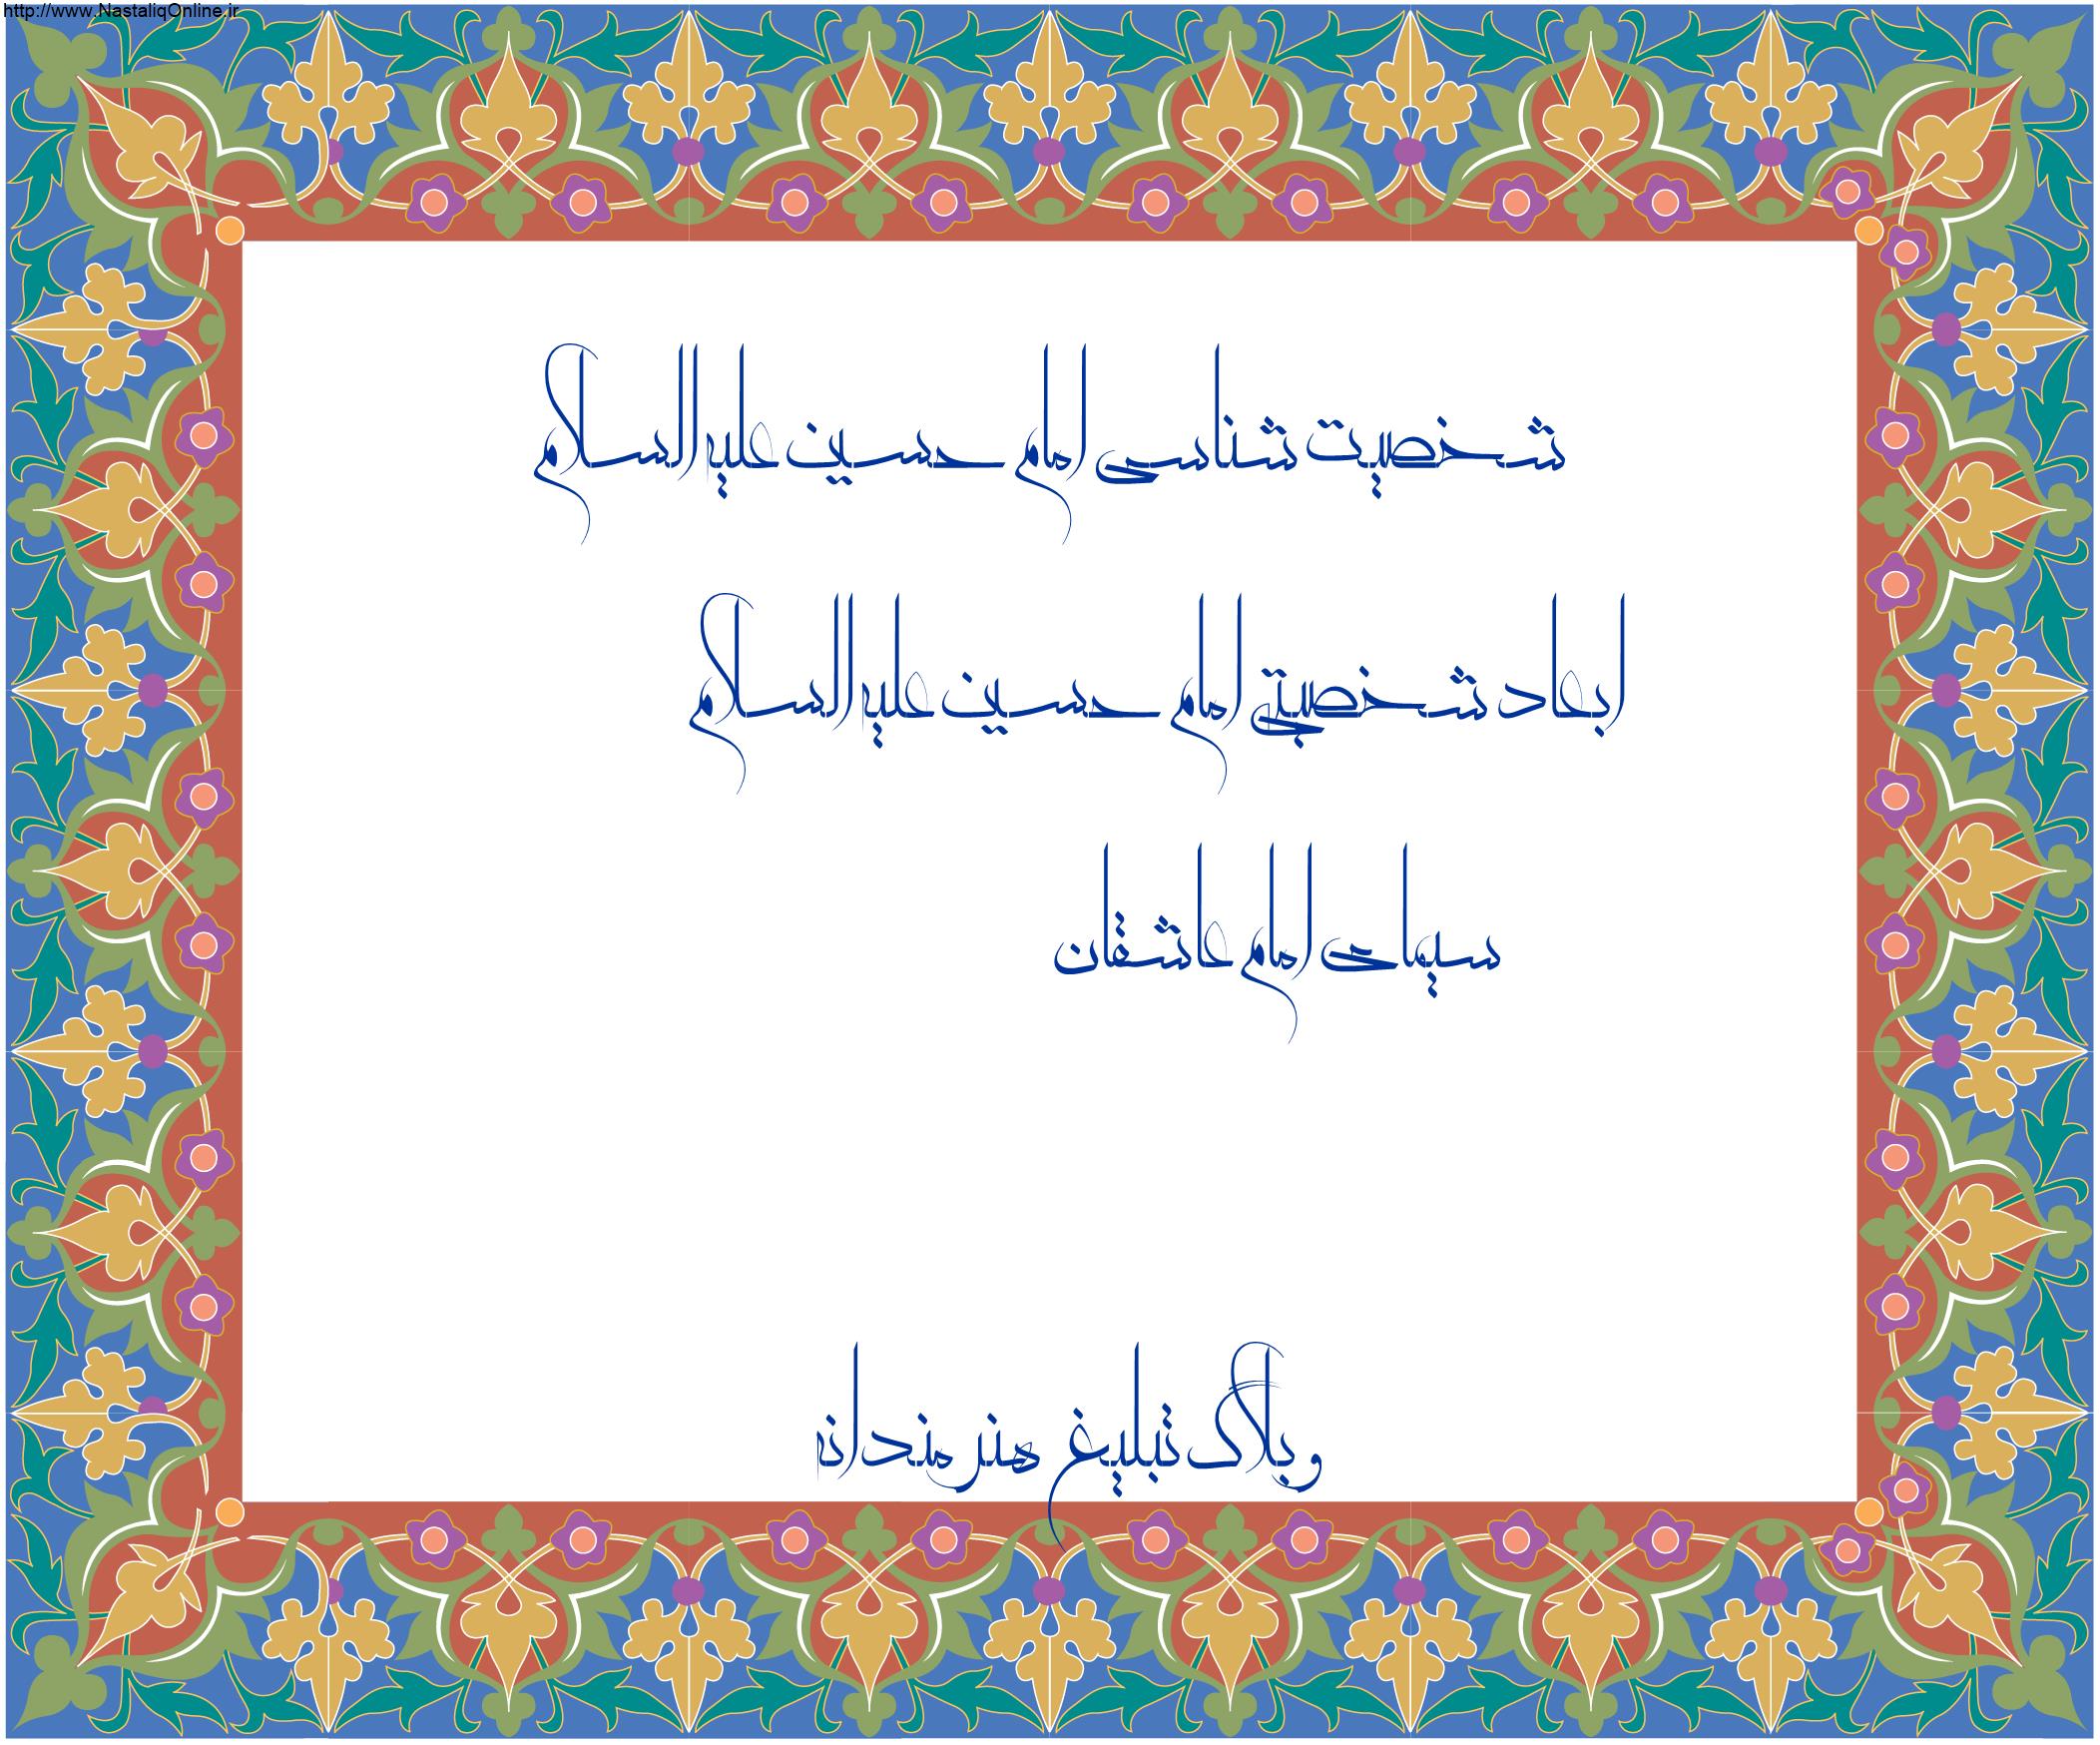 http://www.NastaliqOnline.ir
شخصیت شناسی امام حسین علیه السلام
ابعاد شخصیتی امام حسین علیه السلام
سیمای امام عاشقان
وبلاگ تبلیغ هنرمندانه